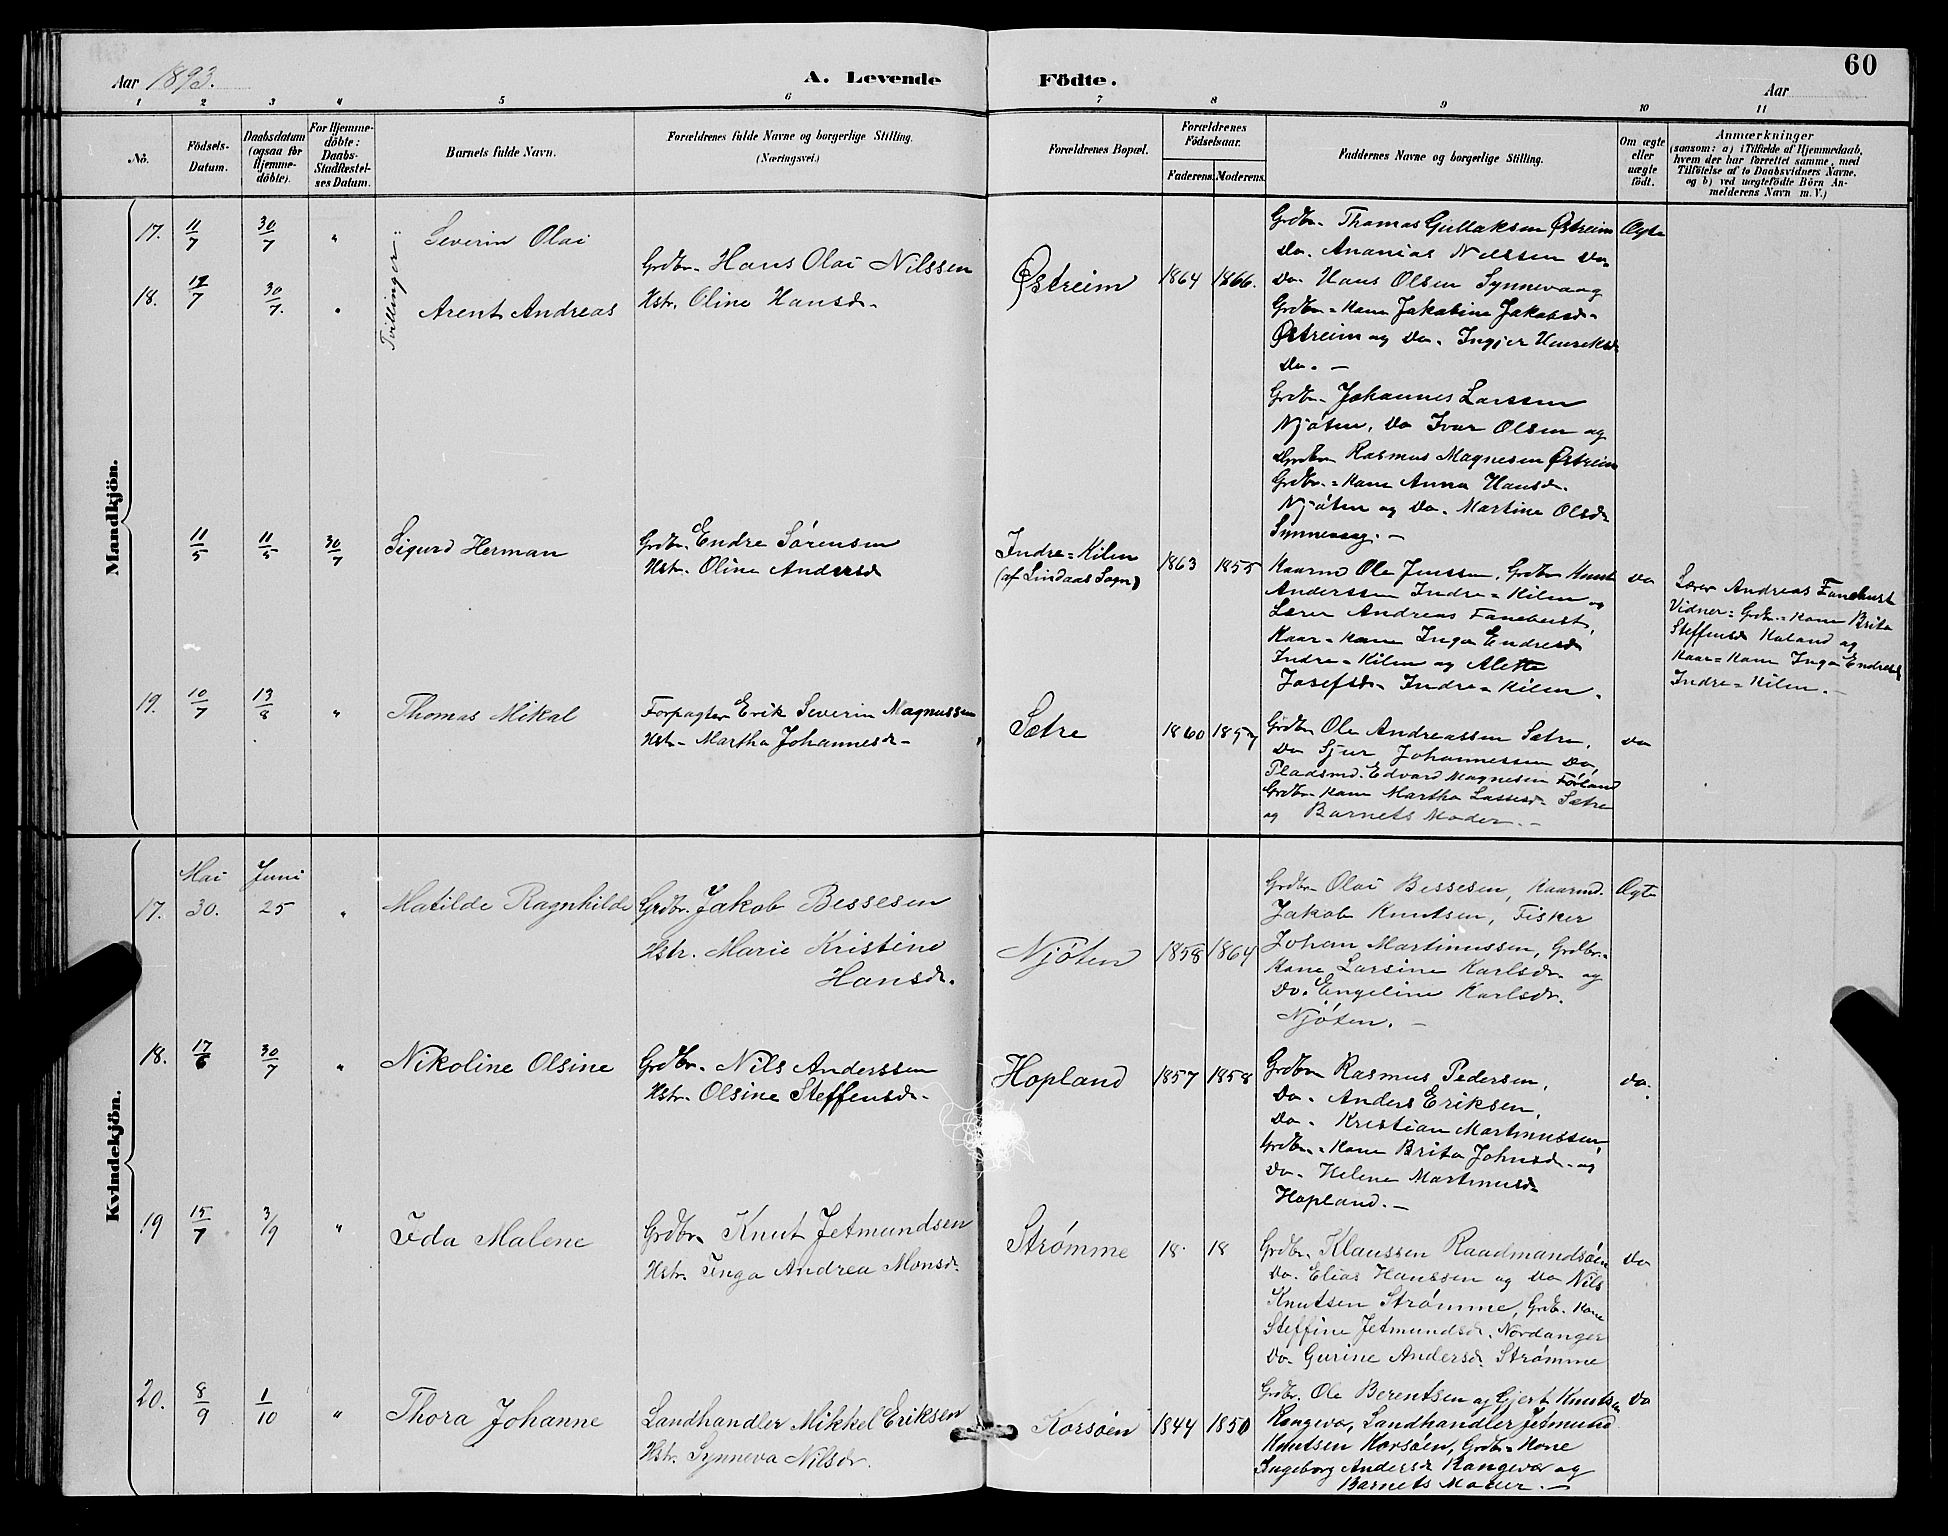 60
Aar 1893.
A. Levende
Födte.
Aar
1 2 3 4 5 6 7 8 9 10 11
No.
Födsels-Datum.
Daabsdatum (ogsaa for Hjemme-döbte).
For Hjemme-döbte: Daabs-Stadfæstel-ses Datum.
Barnets fulde Navn.
Forældrenes fulde Navne og borgerlige Stilling.
(Næringsvei.)
Forældrenes Bopæl.
Forældrenes Födselsaar.
Faderens. Moderens.
Faddernes Navne og borgerlige Stilling.
Om ægte eller uægte födt.
Anmærkninger
(saasom: a) i Tilfælde af Hjemmedaab,
hvem der har forrettet samme, med
Tilföielse af to Daabsvidners Navne,
og b) ved uægtefödte Börn An-
melderens Navn m. V.)
Mandkjön.
17. 11/7 30/7 "
Severin Olai
Tvillinger
18. 12/7 30/7. "
Arent Andreas
Grdbr. Hans Olai Nilssen
Hstr. Oline Hansdr.
Østreim
1864 1866.
Grdbr. Thomas Gullaksen Østreim
Do. Ananias Nilssen Do.
Do Hans Olsen Synnevaag
Grdbr.=kone Jakobine Jakobsdr.
Østreim og Do. Ingjer Henriksdr.
Do. —
Grdbr. Johannes Larssen
Njøten, Do Ivar Olsen og
Grdbr. Rasmus Magnesen Østreim
Grdbr.=kone Anna Hansdr.
Njøten og Do. Martine Olsdr.
Synnevaag. —
Ægte
11/5 11/5 30/7
Sigurd Herman
Grdbr. Endre Sørensen
Hstr. Oline Andersdr
Indre=Kilen
(af Lindaas Sogn)
1863 1855
Kaarmd Ole Jenssen, Grdbr Knut
Anderssen Indre=Kilen og
Lærer Andreas Fanebust,
Kaar=kone Inga Endresdr
Indre=Kilen og Alette
Josefsdr. Indre=Kilen.
Do
Lærer Andreas Fanebust
Vidner: Grdbr.=kone Brita
Steffensdr Haland og
Kaar=kone Inga Endresdr
Indre=Kilen. —
19. 10/7 13/8 "
Thomas Mikal
Forpagter Erik Severin Magnussen
Hstr. Martha Johannesdr.
Sætre
1860 1857
Grdbr Ole Andreassen Sætre,
Do Sjur Johannessen Do,
Pladsmd. Edvard Magnesen Førland
Grdbr. kone Martha Lassesdr. Sætre
og Barnets Moder. —
Do
Kvindekjön.
Mai Juni
17. 30. 25 "
Matilde Ragnhilde
Grdbr. Jakob Bessesen
Hstr. Marie Kristine
Hansdr.
Njøten
1858 1864
Grdbr. Olai Bessesen, Kaarmd.
Jakob Knutsen, Fisker
Johan Martinussen, Grdbr.=
kone Larsine Karlsdr. og
Do. Engeline Karlsdr.
Njøten. —
Ægte
18. 17/6 30/7 "
Nikoline Olsine
Grdbr. Nils Anderssen
Hstr. Olsine Steffensdr.
Hopland
1857 1858
Grdbr Rasmus Pedersen,
Do. Anders Eriksen,
Do. Kristian Martinussen,
Grdbr.=kone Brita Johnsdr. og
Do. Helene Martinusdr
Hopland. —
do.
19 15/7 3/9 "
Ida Malene
Grdbr. Knut Jetmundsen
Hstr. Inga Andrea Monsdr.
Strømme
18 18
Grdbr. Klaussen Raadmandsøen
Do. Elias Hanssen og Do Nils
Knutsen Strømme, Grdb. kone
Steffine Jetmundsdr. Nordanger
Do. Gurine Andersdr. Strømme
Do
20. 8/9 1/10 "
Thora Johanne
Landhandler Mikkel Eriksen
Hstr. Synneva Nilsdr.
Korsøen
1844 1850
Grdbr. Ole Berentsen og Gjert Knutsen
Rangevær, Landhandler Jetmund
Knutsen Korsøen, Grdbr=kone
Ingeborg Andersdr Rangevær og
Barnets Moder. —
Do